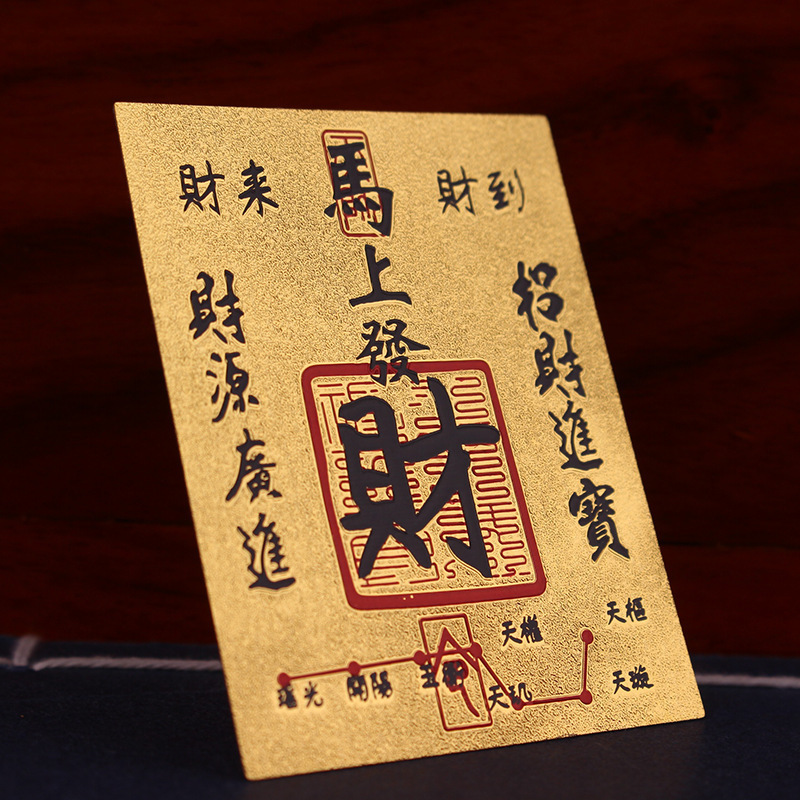 財来
財到
馬上發財
招財進寶
財源廣進
天樞
天璇
天璣
天權
玉衡
開陽
瑤光